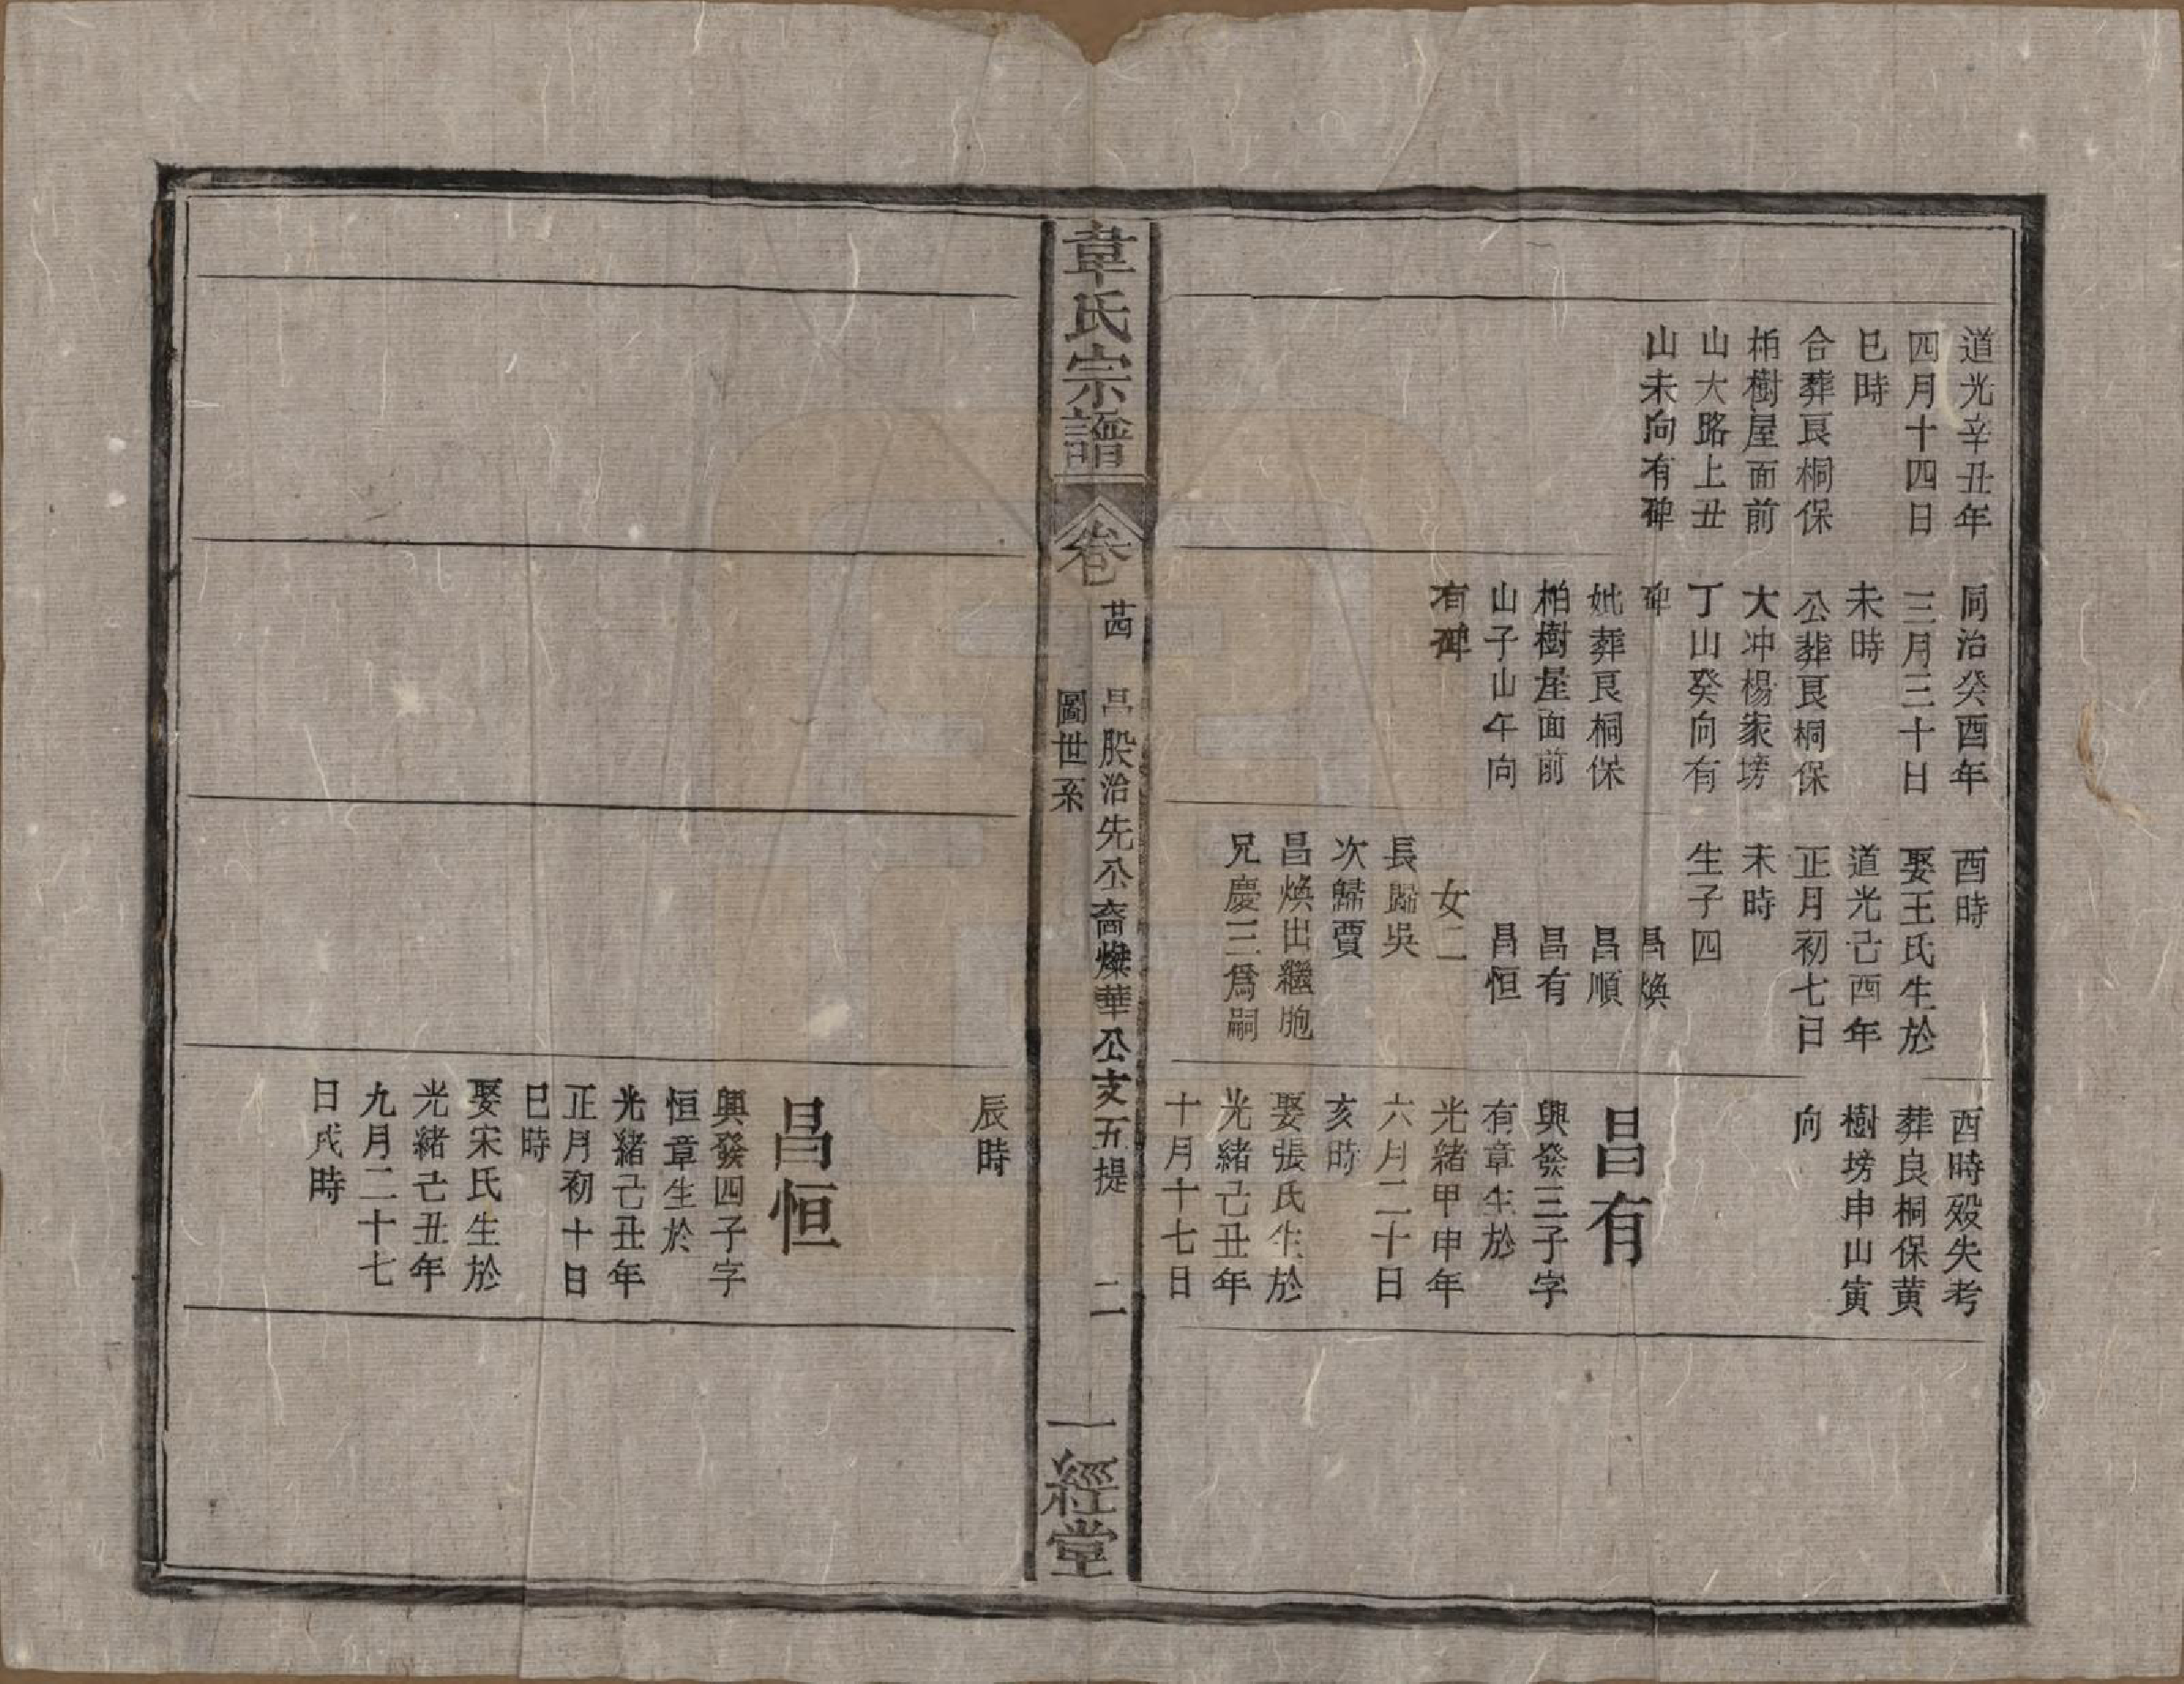 道光辛丑年
四月十四日
巳時
合葬艮桐保
栢樹屋面前
山大路上丑
山未向有碑
同治癸酉年
三月三十日
未時
公葬艮桐保
大冲楊家塝
丁山癸向有
碑
妣葬艮桐保
柏樹屋面前
山子山午向
有碑
酉時
娶王氏生於
道光己酉年
正月初七日
未時
生子四
昌煥
昌順
昌有
昌恒
女二
長歸吳
次歸賈
昌煥出繼胞
兄慶三爲嗣
酉時歿失考
葬良桐保黄
樹塝申山寅
向
昌有
興發三子字
有章生於
光緒甲申年
六月二十日
亥時
娶張氏生於
光緒己丑年
十月十七日
韋氏宗譜
卷
苖 昌股治先公裔燦華公支五提 二
圖世系
一經堂
辰時
昌恒
興發四子字
恒章生於
光緒己丑年
正月初十日
巳時
娶宋氏生於
光緒己丑年
九月二十七
日戌時